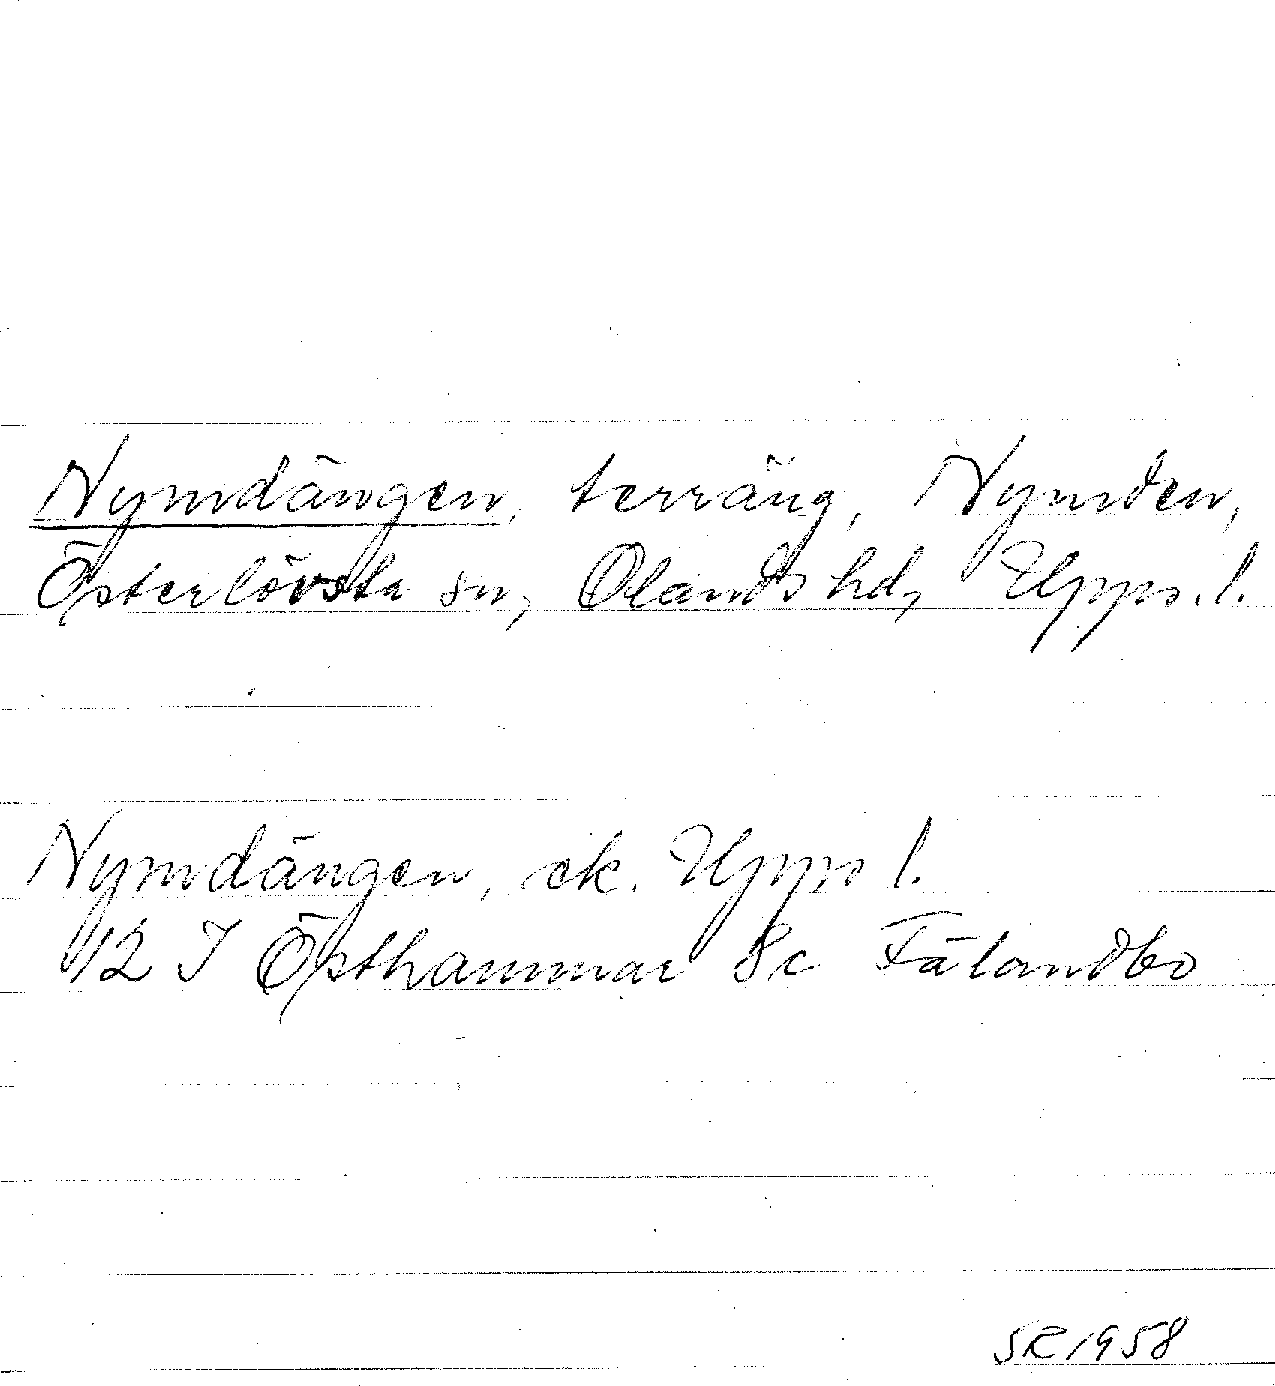 Nymdängen, terräng, Nymden,
Österlövsta sn, Olands hd, Upps. l.
Nymdängen, ek. Upps l.
12 I Östhammar 8c Fälandbo
SR 1958